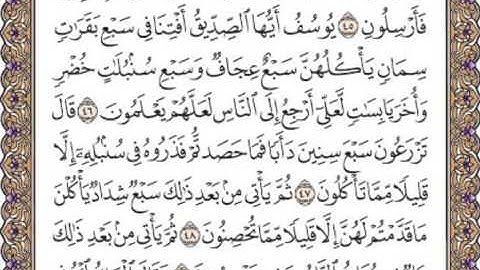 فَأَرْسِلُونِ ﴿٤٥﴾ يُوسُفُ أَيُّهَا ٱلصِّدِّيقُ أَفْتِنَا فِى سَبْعِ بَقَرَٰتٍ
سِمَانٍ يَأْكُلُهُنَّ سَبْعٌ عِجَافٌ وَسَبْعِ سُنۢبُلَٰتٍ خُضْرٍ
وَأُخَرَ يَابِسَٰتٍ لَّعَلِّىٓ أَرْجِعُ إِلَى ٱلنَّاسِ لَعَلَّهُمْ يَعْلَمُونَ ﴿٤٦﴾ قَالَ
تَزْرَعُونَ سَبْعَ سِنِينَ دَأَبًا فَمَا حَصَدتُّمْ فَذَرُوهُ فِى سُنۢبُلِهِۦٓ إِلَّا
قَلِيلًا مِّمَّا تَأْكُلُونَ ﴿٤٧﴾ ثُمَّ يَأْتِى مِنۢ بَعْدِ ذَٰلِكَ سَبْعٌ شِدَادٌ يَأْكُلْنَ
مَا قَدَّمْتُمْ لَهُنَّ إِلَّا قَلِيلًا مِّمَّا تُحْصِنُونَ ﴿٤٨﴾ ثُمَّ يَأْتِى مِنۢ بَعْدِ ذَٰلِكَ